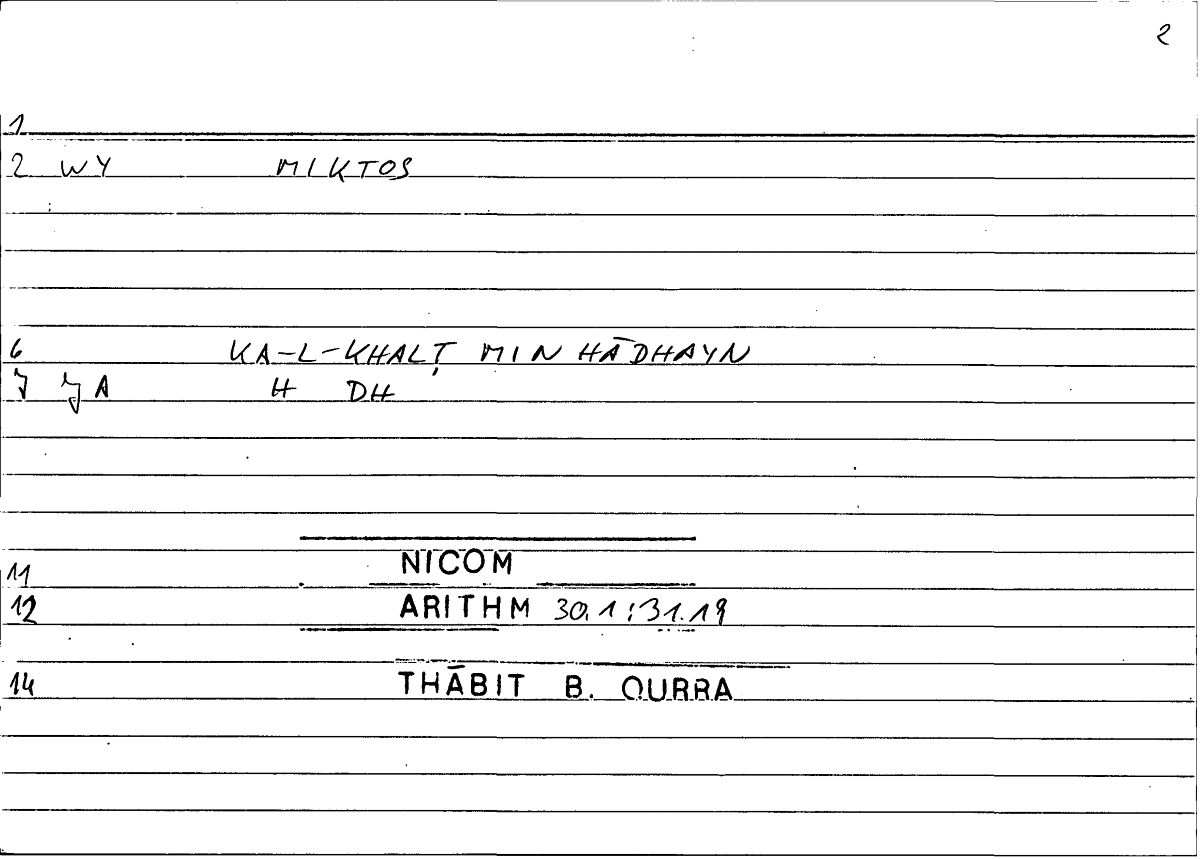 2
1
2 WY MIKTOS
6 KA-L-KHALṬ MIN HĀDHAYN
7 JA H DH
11 NICOM
12 ARITHM 30.1;31.19
14 THĀBIT B. QURRA